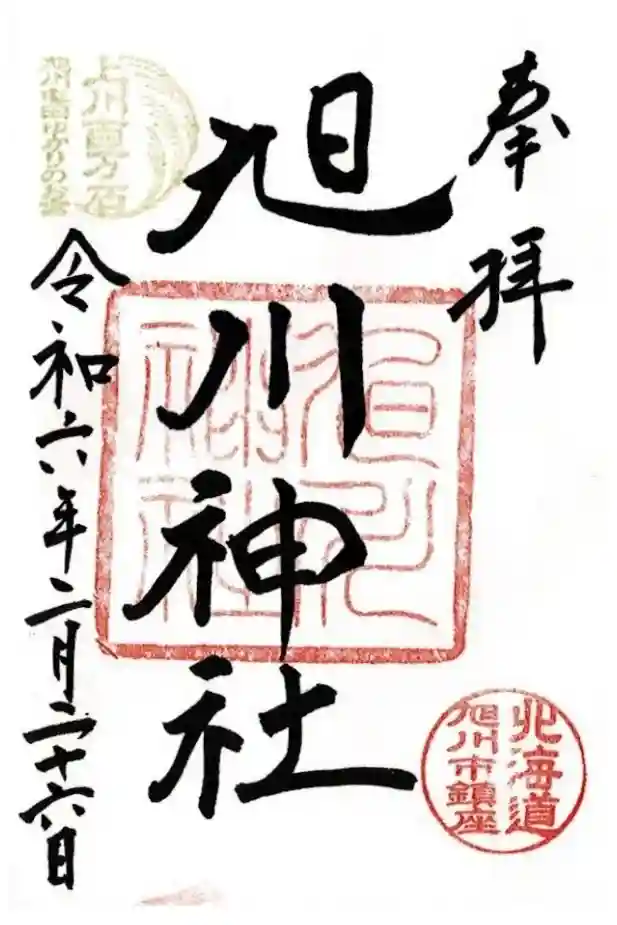 奉拝
北海道
旭川市鎮座
旭川神社
旭川神社
上川百万石
旭川屯田ゆかりのお宮
令和六年二月二十六日